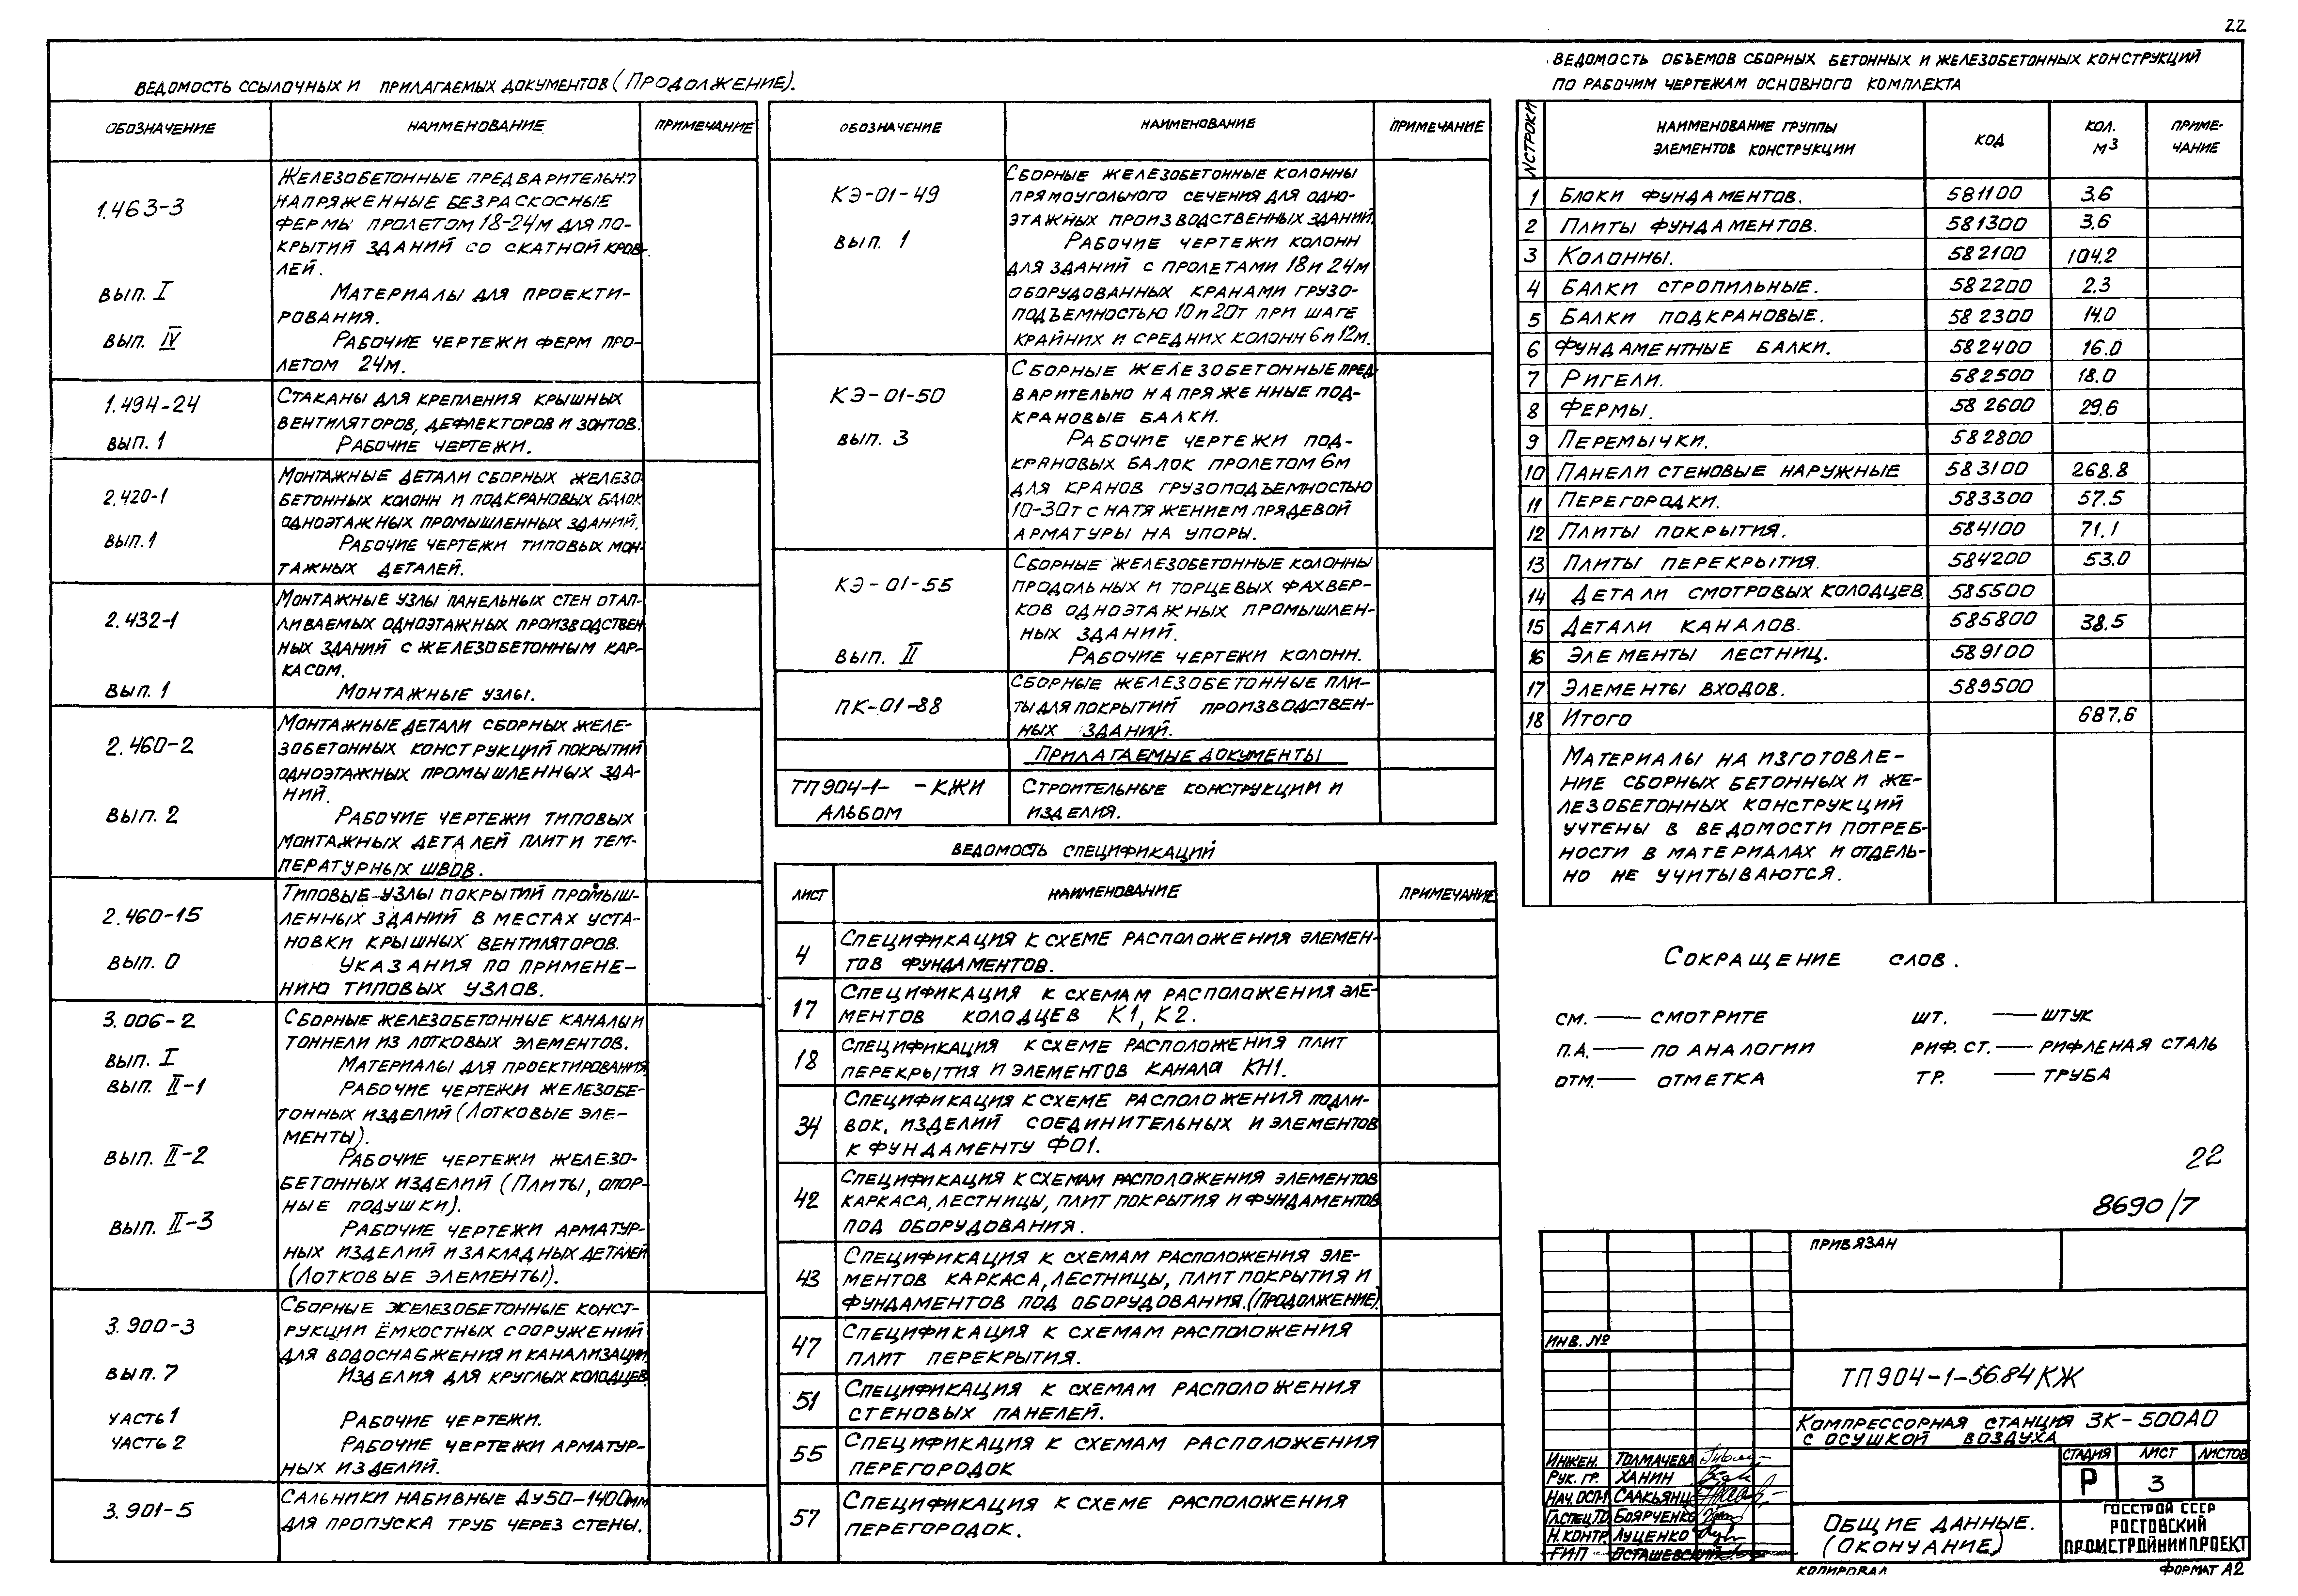 22
ВЕДОМОСТЬ ССЫЛОЧНЫХ И ПРИЛАГАЕМЫХ ДОКУМЕНТОВ (ПРОДОЛЖЕНИЕ).
ОБОЗНАЧЕНИЕ НАИМЕНОВАНИЕ ПРИМЕЧАНИЕ
ЖЕЛЕЗОБЕТОННЫЕ ПРЕДВАРИТЕЛЬНО
1.463-3 НАПРЯЖЕННЫЕ БЕЗРАСКОСНЫЕ
ФЕРМЫ ПРОЛЕТОМ 18-24М ДЛЯ ПО-
КРЫТИЙ ЗДАНИЙ СО СКАТНОЙ КРОВ-
ЛЕЙ.
ВЫП. I МАТЕРИАЛЫ ДЛЯ ПРОЕКТИ-
РОВАНИЯ.
ВЫП. IV РАБОЧИЕ ЧЕРТЕЖИ ФЕРМ ПРО-
ЛЕТОМ 24М.
1.494-24 СТАКАНЫ ДЛЯ КРЕПЛЕНИЯ КРЫШНЫХ
ВЕНТИЛЯТОРОВ, ДЕФЛЕКТОРОВ И ЗОНТОВ.
ВЫП. 1 РАБОЧИЕ ЧЕРТЕЖИ.
МОНТАЖНЫЕ ДЕТАЛИ СБОРНЫХ ЖЕЛЕЗО
2.420-1 БЕТОННЫХ КОЛОНН И ПОДКРАНОВЫХ БАЛОК
ОДНОЭТАЖНЫХ ПРОМЫШЛЕННЫХ ЗДАНИЙ.
ВЫП. 1 РАБОЧИЕ ЧЕРТЕЖИ ТИПОВЫХ МОН-
ТАЖНЫХ ДЕТАЛЕЙ.
МОНТАЖНЫЕ УЗЛЫ ПАНЕЛЬНЫХ СТЕН ОТАП-
2.432-1 ЛИВАЕМЫХ ОДНОЭТАЖНЫХ ПРОИЗВОДСТВЕН
НЫХ ЗДАНИЙ С ЖЕЛЕЗОБЕТОННЫМ КАР-
КАСОМ.
ВЫП. 1 МОНТАЖНЫЕ УЗЛЫ.
МОНТАЖНЫЕ ДЕТАЛИ СБОРНЫХ ЖЕЛЕ-
2.460-2 ЗОБЕТОННЫХ КОНСТРУКЦИЙ ПОКРЫТИЙ
ОДНОЭТАЖНЫХ ПРОМЫШЛЕННЫХ ЗДА-
НИЙ.
ВЫП. 2 РАБОЧИЕ ЧЕРТЕЖИ ТИПОВЫХ
МОНТАЖНЫХ ДЕТАЛЕЙ ПЛИТ И ТЕМ-
ПЕРАТУРНЫХ ШВОВ.
ТИПОВЫЕ УЗЛЫ ПОКРЫТИЙ ПРОМЫШ-
2.460-15 ЛЕННЫХ ЗДАНИЙ В МЕСТАХ УСТА-
НОВКИ КРЫШНЫХ ВЕНТИЛЯТОРОВ.
ВЫП. 0 УКАЗАНИЯ ПО ПРИМЕНЕ-
НИЮ ТИПОВЫХ УЗЛОВ.
3.006-2 СБОРНЫЕ ЖЕЛЕЗОБЕТОННЫЕ КАНАЛЫ И
ТОННЕЛИ ИЗ ЛОТКОВЫХ ЭЛЕМЕНТОВ.
ВЫП. I МАТЕРИАЛЫ ДЛЯ ПРОЕКТИРОВАНИЯ
ВЫП. II-1 РАБОЧИЕ ЧЕРТЕЖИ ЖЕЛЕЗОБЕ-
ТОННЫХ ИЗДЕЛИЙ (ЛОТКОВЫЕ ЭЛЕ-
МЕНТЫ).
ВЫП. II-2 РАБОЧИЕ ЧЕРТЕЖИ ЖЕЛЕЗО-
БЕТОННЫХ ИЗДЕЛИЙ (ПЛИТЫ, ОПОР-
НЫЕ ПОДУШКИ).
ВЫП. II-3 РАБОЧИЕ ЧЕРТЕЖИ АРМАТУР-
НЫХ ИЗДЕЛИЙ И ЗАКЛАДНЫХ ДЕТАЛЕЙ
(ЛОТКОВЫЕ ЭЛЕМЕНТЫ).
СБОРНЫЕ ЖЕЛЕЗОБЕТОННЫЕ КОНСТ-
3.900-3 РУКЦИИ ЁМКОСТНЫХ СООРУЖЕНИЙ
ДЛЯ ВОДОСНАБЖЕНИЯ И КАНАЛИЗАЦИИ.
ВЫП. 7 ИЗДЕЛИЯ ДЛЯ КРУГЛЫХ КОЛОДЦЕВ
ЧАСТЬ 1 РАБОЧИЕ ЧЕРТЕЖИ.
ЧАСТЬ 2 РАБОЧИЕ ЧЕРТЕЖИ АРМАТУР-
НЫХ ИЗДЕЛИЙ.
3.901-5 САЛЬНИКИ НАБИВНЫЕ ДУ50-1400ММ
ДЛЯ ПРОПУСКА ТРУБ ЧЕРЕЗ СТЕНЫ.
ОБОЗНАЧЕНИЕ НАИМЕНОВАНИЕ ПРИМЕЧАНИЕ
СБОРНЫЕ ЖЕЛЕЗОБЕТОННЫЕ КОЛОННЫ
КЭ-01-49 ПРЯМОУГОЛЬНОГО СЕЧЕНИЯ ДЛЯ ОДНО-
ЭТАЖНЫХ ПРОИЗВОДСТВЕННЫХ ЗДАНИЙ.
ВЫП. 1 РАБОЧИЕ ЧЕРТЕЖИ КОЛОНН
ДЛЯ ЗДАНИЙ С ПРОЛЕТАМИ 18 И 24М
ОБОРУДОВАННЫХ КРАНАМИ ГРУЗО-
ПОДЪЕМНОСТЬЮ 10 И 20Т ПРИ ШАГЕ
КРАЙНИХ И СРЕДНИХ КОЛОНН 6 И 12М.
СБОРНЫЕ ЖЕЛЕЗОБЕТОННЫЕ ПРЕД-
КЭ-01-50 ВАРИТЕЛЬНО НАПРЯЖЕННЫЕ ПОД-
КРАНОВЫЕ БАЛКИ.
ВЫП. 3 РАБОЧИЕ ЧЕРТЕЖИ ПОД-
КРАНОВЫХ БАЛОК ПРОЛЕТОМ 6М
ДЛЯ КРАНОВ ГРУЗОПОДЪЕМНОСТЬЮ
10-30Т С НАТЯЖЕНИЕМ ПРЯДЕВОЙ
АРМАТУРЫ НА УПОРЫ.
СБОРНЫЕ ЖЕЛЕЗОБЕТОННЫЕ КОЛОННЫ
КЭ-01-55 ПРОДОЛЬНЫХ И ТОРЦЕВЫХ ФАХВЕР-
КОВ ОДНОЭТАЖНЫХ ПРОМЫШЛЕН-
НЫХ ЗДАНИЙ.
ВЫП. II РАБОЧИЕ ЧЕРТЕЖИ КОЛОНН.
СБОРНЫЕ ЖЕЛЕЗОБЕТОННЫЕ ПЛИ-
ПК-01-88 ТЫ ДЛЯ ПОКРЫТИЙ ПРОИЗВОДСТВЕН-
НЫХ ЗДАНИЙ.
ПРИЛАГАЕМЫЕ ДОКУМЕНТЫ
ТП904-1- -КЖИ СТРОИТЕЛЬНЫЕ КОНСТРУКЦИИ И
АЛЬБОМ ИЗДЕЛИЯ.
ВЕДОМОСТЬ СПЕЦИФИКАЦИЙ
ЛИСТ НАИМЕНОВАНИЕ ПРИМЕЧАНИЕ
4 СПЕЦИФИКАЦИЯ К СХЕМЕ РАСПОЛОЖЕНИЯ ЭЛЕМЕН-
ТОВ ФУНДАМЕНТОВ.
17 СПЕЦИФИКАЦИЯ К СХЕМАМ РАСПОЛОЖЕНИЯ ЭЛЕ-
МЕНТОВ КОЛОДЦЕВ К1, К2.
18 СПЕЦИФИКАЦИЯ К СХЕМЕ РАСПОЛОЖЕНИЯ ПЛИТ
ПЕРЕКРЫТИЯ И ЭЛЕМЕНТОВ КАНАЛА КН1.
СПЕЦИФИКАЦИЯ К СХЕМЕ РАСПОЛОЖЕНИЯ ПОДЛИ-
34 ВОК, ИЗДЕЛИЙ СОЕДИНИТЕЛЬНЫХ И ЭЛЕМЕНТОВ
К ФУНДАМЕНТУ ФО1.
СПЕЦИФИКАЦИЯ К СХЕМАМ РАСПОЛОЖЕНИЯ ЭЛЕМЕНТОВ
42 КАРКАСА, ЛЕСТНИЦЫ, ПЛИТ ПОКРЫТИЯ И ФУНДАМЕНТОВ
ПОД ОБОРУДОВАНИЯ.
СПЕЦИФИКАЦИЯ К СХЕМАМ РАСПОЛОЖЕНИЯ ЭЛЕ-
43 МЕНТОВ КАРКАСА, ЛЕСТНИЦЫ, ПЛИТ ПОКРЫТИЯ И
ФУНДАМЕНТОВ ПОД ОБОРУДОВАНИЯ. (ПРОДОЛЖЕНИЕ).
47 СПЕЦИФИКАЦИЯ К СХЕМАМ РАСПОЛОЖЕНИЯ
ПЛИТ ПЕРЕКРЫТИЯ.
51 СПЕЦИФИКАЦИЯ К СХЕМАМ РАСПОЛОЖЕНИЯ
СТЕНОВЫХ ПАНЕЛЕЙ.
55 СПЕЦИФИКАЦИЯ К СХЕМАМ РАСПОЛОЖЕНИЯ
ПЕРЕГОРОДОК
57 СПЕЦИФИКАЦИЯ К СХЕМЕ РАСПОЛОЖЕНИЯ
ПЕРЕГОРОДОК.
ВЕДОМОСТЬ ОБЪЕМОВ СБОРНЫХ БЕТОННЫХ И ЖЕЛЕЗОБЕТОННЫХ КОНСТРУКЦИЙ
ПО РАБОЧИМ ЧЕРТЕЖАМ ОСНОВНОГО КОМПЛЕКТА
NСТРОКИ НАИМЕНОВАНИЕ ГРУППЫ ЭЛЕМЕНТОВ КОНСТРУКЦИИ КОД КОЛ. М³ ПРИМЕ-ЧАНИЕ
1 БЛОКИ ФУНДАМЕНТОВ. 581100 3.6
2 ПЛИТЫ ФУНДАМЕНТОВ. 581300 3.6
3 КОЛОННЫ. 582100 104.2
4 БАЛКИ СТРОПИЛЬНЫЕ. 582200 2.3
5 БАЛКИ ПОДКРАНОВЫЕ. 582300 14.0
6 ФУНДАМЕНТНЫЕ БАЛКИ. 582400 16.0
7 РИГЕЛИ. 582500 18.0
8 ФЕРМЫ. 582600 29.6
9 ПЕРЕМЫЧКИ. 582800
10 ПАНЕЛИ СТЕНОВЫЕ НАРУЖНЫЕ 583100 268.8
11 ПЕРЕГОРОДКИ. 583300 57.5
12 ПЛИТЫ ПОКРЫТИЯ. 584100 71.1
13 ПЛИТЫ ПЕРЕКРЫТИЯ. 584200 53.0
14 ДЕТАЛИ СМОТРОВЫХ КОЛОДЦЕВ 585500
15 ДЕТАЛИ КАНАЛОВ. 585800 38.5
16 ЭЛЕМЕНТЫ ЛЕСТНИЦ. 589100
17 ЭЛЕМЕНТЫ ВХОДОВ. 589500
18 ИТОГО 687.6
МАТЕРИАЛЫ НА ИЗГОТОВЛЕ-
НИЕ СБОРНЫХ БЕТОННЫХ И ЖЕ-
ЛЕЗОБЕТОННЫХ КОНСТРУКЦИЙ
УЧТЕНЫ В ВЕДОМОСТИ ПОТРЕБ-
НОСТИ В МАТЕРИАЛАХ И ОТДЕЛЬ-
НО НЕ УЧИТЫВАЮТСЯ.
СОКРАЩЕНИЕ СЛОВ.
СМ. — СМОТРИТЕ ШТ. — ШТУК
П.А. — ПО АНАЛОГИИ РИФ. СТ. — РИФЛЕНАЯ СТАЛЬ
ОТМ. — ОТМЕТКА ТР. — ТРУБА
22
8690/7
ПРИВЯЗАН
ИНВ. №
ТП904-1-56.84 КЖ
КОМПРЕССОРНАЯ СТАНЦИЯ 3К-500АО
С ОСУШКОЙ ВОЗДУХА
СТАДИЯ ЛИСТ ЛИСТОВ
Р 3
ИНЖЕН. ТОЛМАЧЕВА
РУК. ГР. ХАНИН
НАЧ. ОСП-1 СААКЬЯНЦ
ГЛ.СПЕЦ.ТО БОЯРЧЕНКО
Н. КОНТР. ЛУЦЕНКО
ГИП ОСТАШЕВСКИЙ
ОБЩИЕ ДАННЫЕ.
(ОКОНЧАНИЕ)
ГОССТРОЙ СССР
РОСТОВСКИЙ
ПРОМСТРОЙНИИПРОЕКТ
КОПИРОВАЛ ФОРМАТ А2